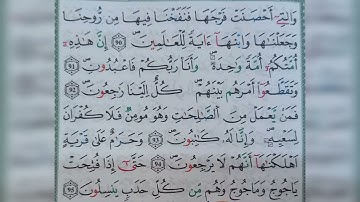 وَالَّتِىٓ أَحْصَنَتْ فَرْجَهَا فَنَفَخْنَا فِيهَا مِن رُّوحِنَا
وَجَعَلْنَٰهَا وَٱبْنَهَآ ءَايَةً لِّلْعَٰلَمِينَ ۝٩٠ إِنَّ هَٰذِهِۦٓ
أُمَّتُكُمْ أُمَّةً وَٰحِدَةً وَأَنَا۠ رَبُّكُمْ فَٱعْبُدُونِ ۝٩١
وَتَقَطَّعُوٓا۟ أَمْرَهُم بَيْنَهُمْ كُلٌّ إِلَيْنَا رَٰجِعُونَ ۝٩٢
فَمَن يَعْمَلْ مِنَ ٱلصَّٰلِحَٰتِ وَهُوَ مُؤْمِنٌ فَلَا كُفْرَانَ
لِسَعْيِهِۦ وَإِنَّا لَهُۥ كَٰتِبُونَ ۝٩٣ وَحَرَٰمٌ عَلَىٰ قَرْيَةٍ
أَهْلَكْنَٰهَآ أَنَّهُمْ لَا يَرْجِعُونَ ۝٩٤ حَتَّىٰٓ إِذَا فُتِحَتْ
يَأْجُوجُ وَمَأْجُوجُ وَهُم مِّن كُلِّ حَدَبٍ يَنسِلُونَ ۝٩٥